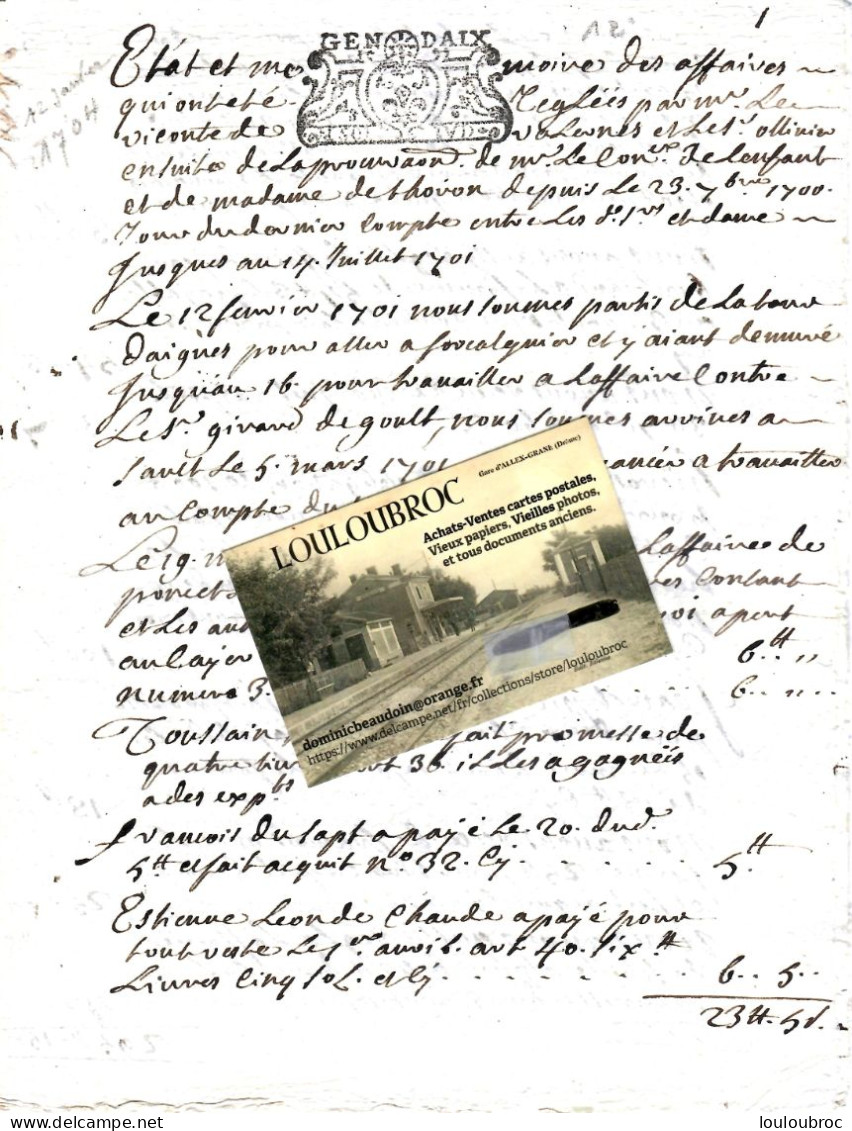 1
12
GEN DAIX
Etat et me moire des affaires
qui ont eté reglééis par mr. Le
12 Janvier
1704
viconte de valernes et Le sr. ollivier
ensuite de La procuraon. de mr. Le Coner. De Lenfant
et de madame de thoron depuis Le 23. 7bre 1700.
Jour du dernier Compte entre Les ds. srs et dame
Jusques au 14. Juillet 1701
Le 12 fevrier 1701 nous sommes partis de La tour
daigues pour aller a forcalquier et y aiant demuré
Jusquau 16. pour travailler a Laffaire Contre
Le sr. girard de goult, nous sommes arrivés a
Le 5. mars 1701 a travailler
au Compte du
Le 19. m Laffaire de
et Les aut a part
au Cayer 6.tt ,,
numero 3. 6.. ,, ..
Toussain fait promesse de
quatre liv 36. il Les a gagnééis
a des expts
francois Du sapt a payé Le 20. dud.
5tt et fait acquit no. 32. Cy . . . . . . 5.tt
Estienne Leon de Chaude a payé pour
tout reste Le 1er avril. art 40. six tt
Livres Cinq sol. et Cy . . . . . . 6.. 5..
23tt. 5s.
LOULOUBROC
Gare d'ALLEX-GRANE (Drôme)
Achats-Ventes cartes postales,
Vieux papiers, Vieilles photos,
et tous documents anciens.
dominicbeaudoin@orange.fr
https://www.delcampe.net/fr/collections/store/louloubroc
delcampe.net
louloubroc